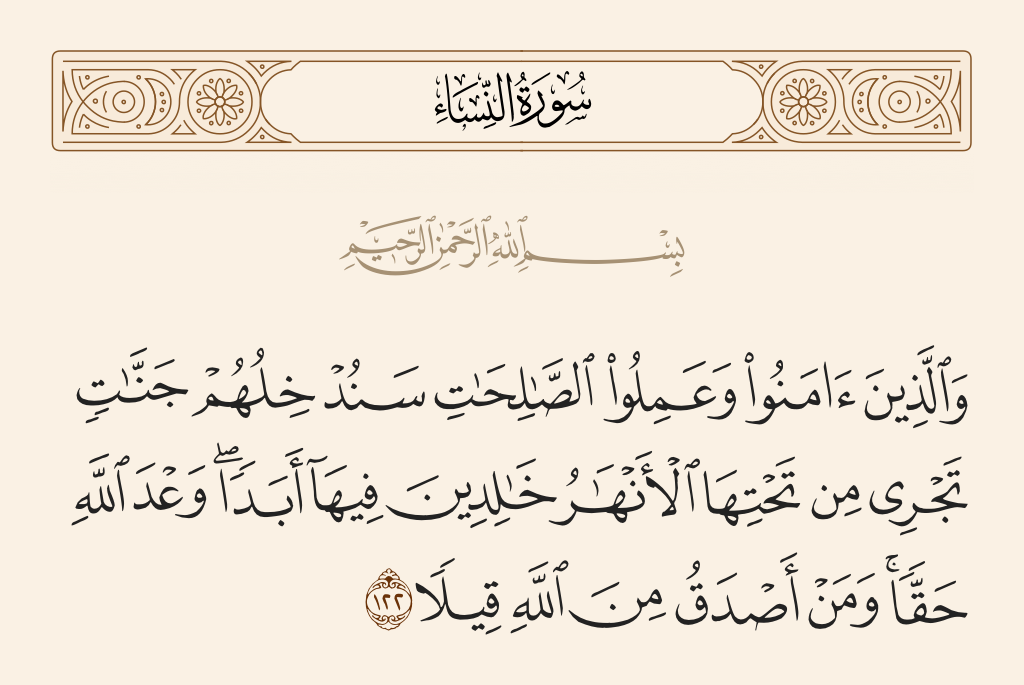 سُورَةُ النِّسَاءِ
بِسْمِ ٱللَّهِ ٱلرَّحْمَٰنِ ٱلرَّحِيمِ
وَٱلَّذِينَ ءَامَنُوا۟ وَعَمِلُوا۟ ٱلصَّـٰلِحَـٰتِ سَنُدْخِلُهُمْ جَنَّـٰتٍ
تَجْرِى مِن تَحْتِهَا ٱلْأَنْهَـٰرُ خَـٰلِدِينَ فِيهَآ أَبَدًا ۖ وَعْدَ ٱللَّهِ
حَقًّا ۚ وَمَنْ أَصْدَقُ مِنَ ٱللَّهِ قِيلًا ١٢٢